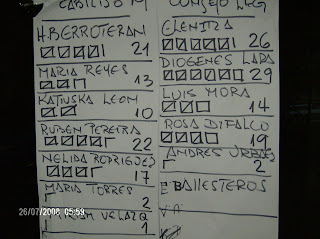 CABILDO M
H.BERROTERAN
21
MARIA REYES
13
KATIUSKA LEON
10
RUBEN PEREIRA
22
NELIDA RODRIGUEZ
17
MARIA TORRES
2
MIRIAM VELAZQ
1
CONSEJO LEG
ELENITZA
26
DIOGENES LARA
29
LUIS MORA
14
ROSA DIFALCO
19
ANDRES
2
E BALLESTEROS
26/07/2008 05:59